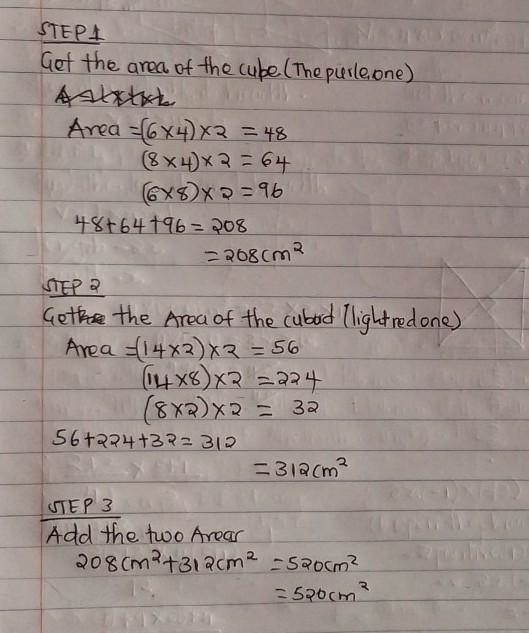 STEP 1
Get the area of the cube (The purle one)
Area = (6x4) x 2 = 48
(8x4) x 2 = 64
(6x8) x 2 = 96
48+64+96 = 208
= 208cm²
STEP 2
Get the Area of the cuboid (light red one)
Area = (14x2) x 2 = 56
(14x8) x 2 = 224
(8x2) x 2 = 32
56+224+32 = 312
= 312cm²
STEP 3
Add the two Areas
208cm²+312cm² = 520cm²
= 520cm²